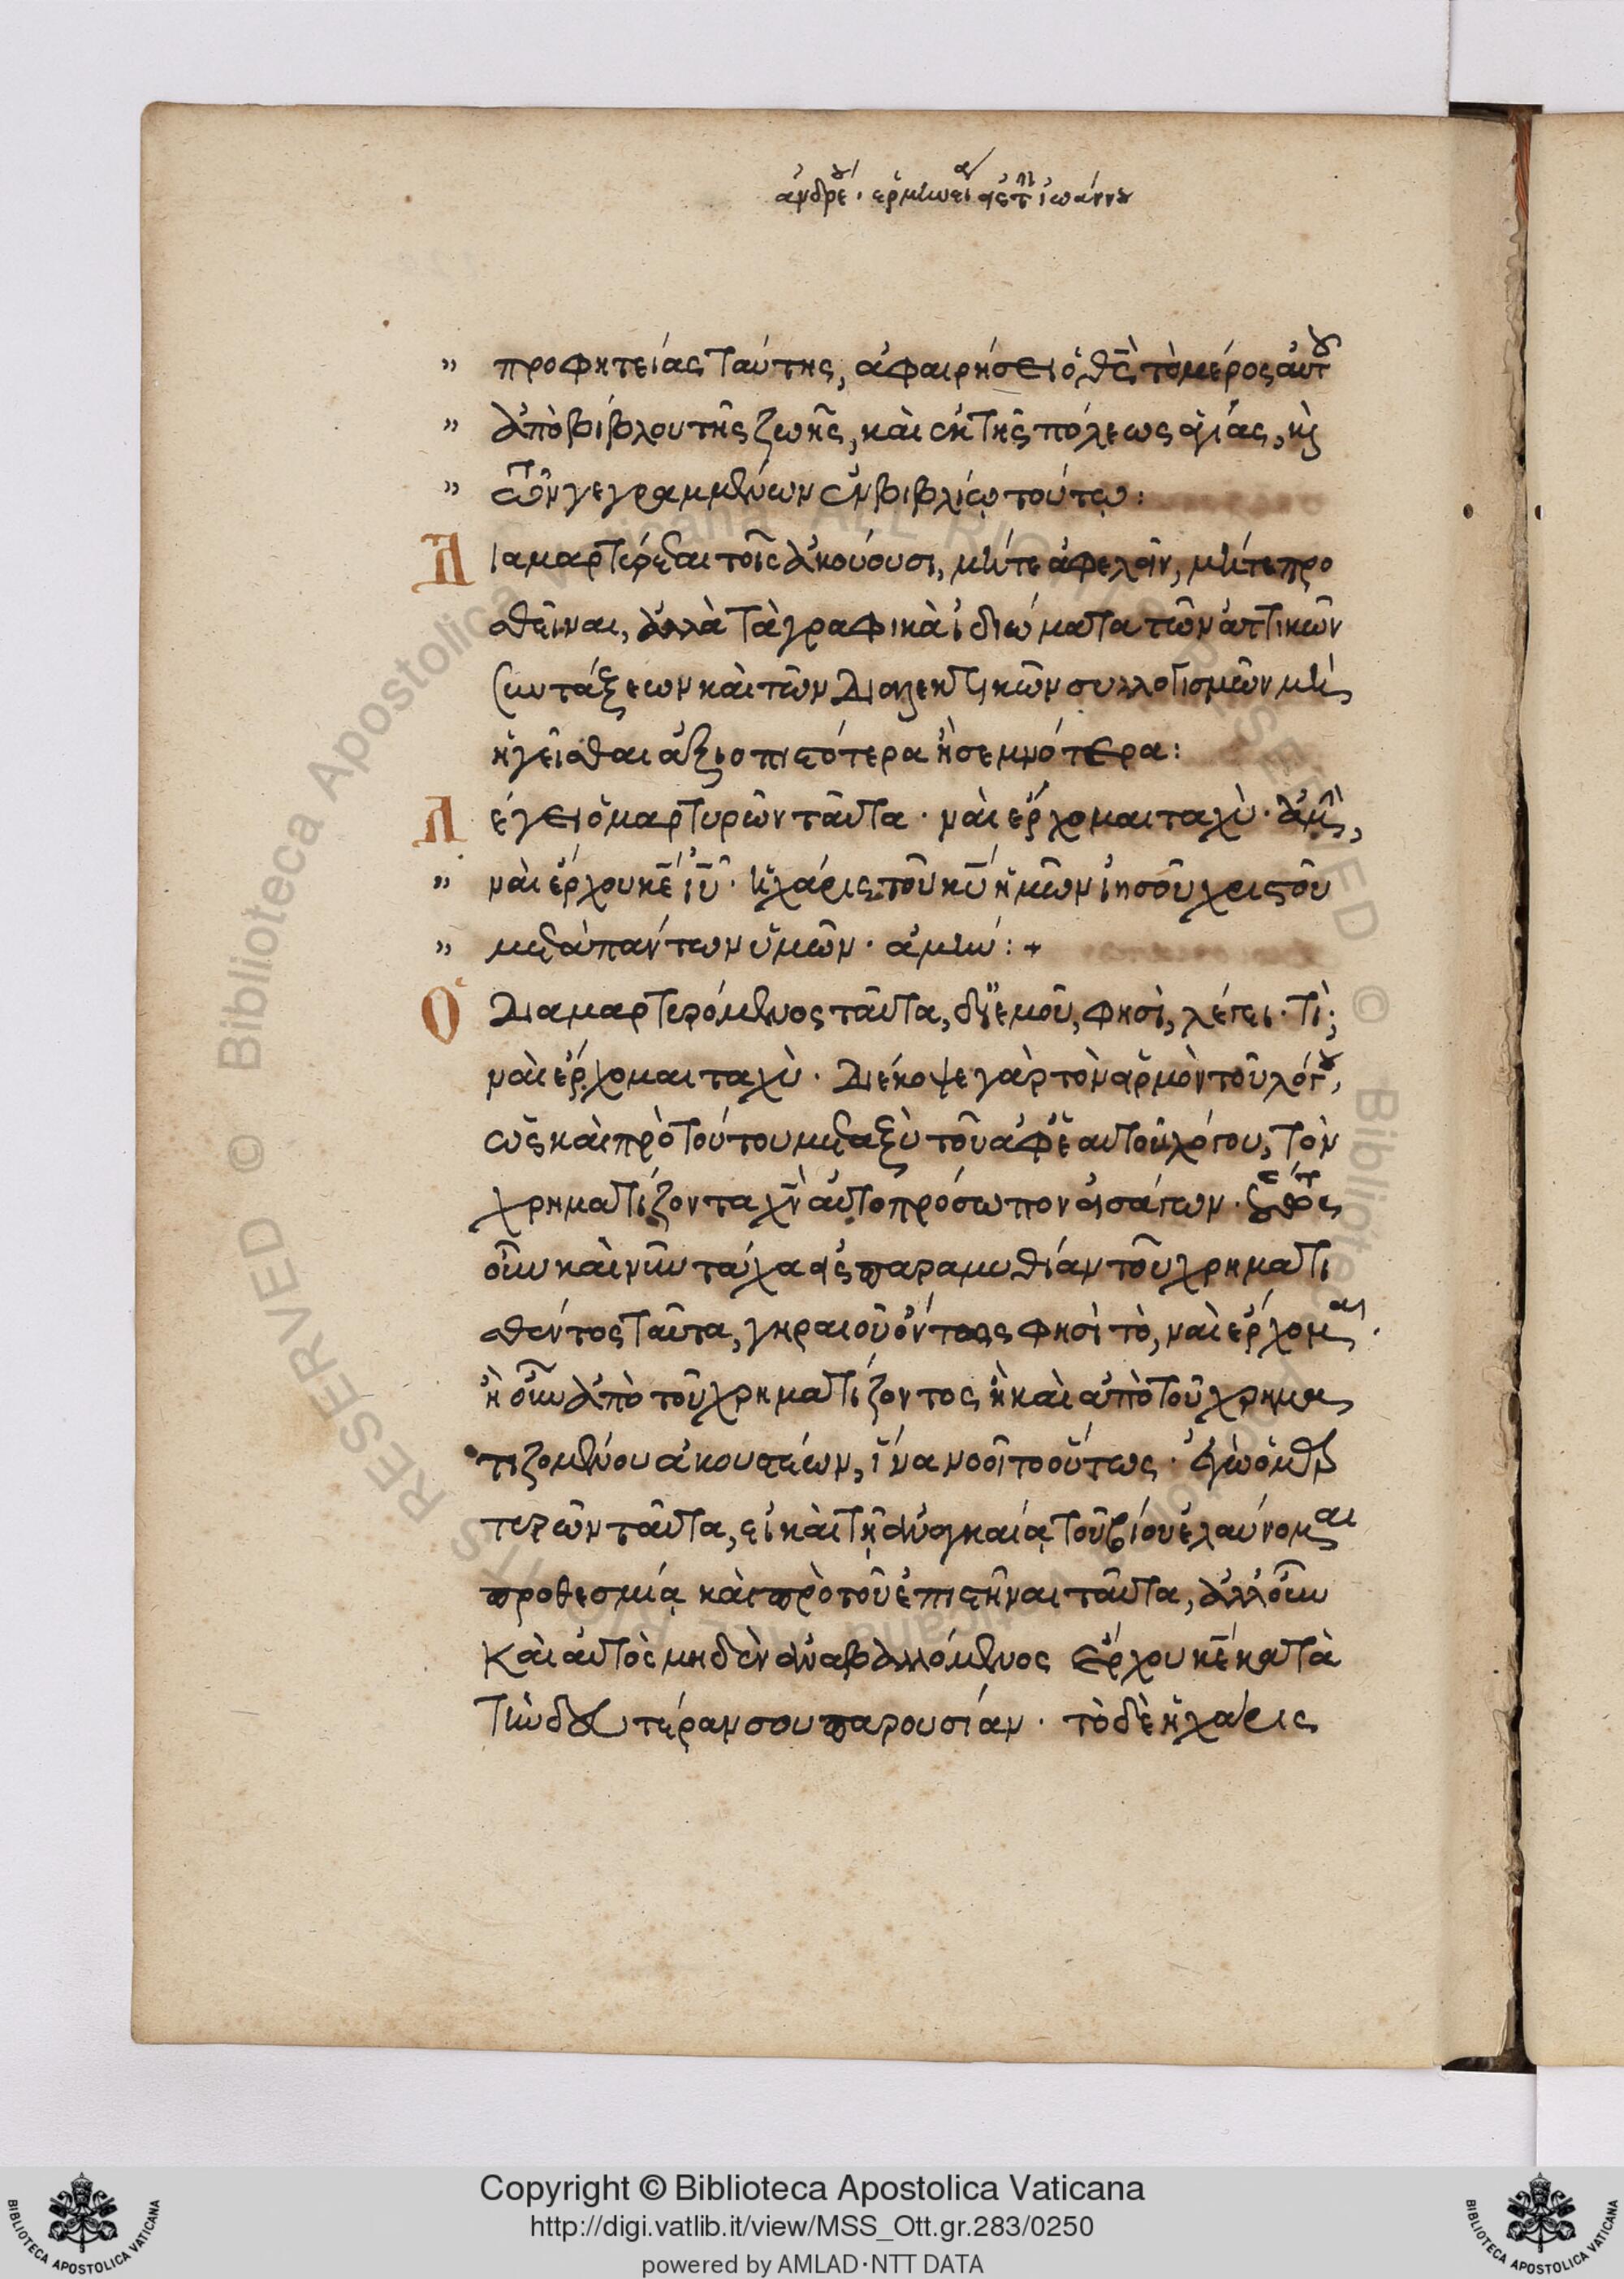 ἀνδρέου. ἑρμηνεία εἰς τ ἰωάννου
" προφητείας ταύτης, ἀφαιρήσει ὁ θς τὸ μέρος αὐτοῦ
" ἀπὸ βίβλου τῆς ζωῆς, καὶ ἐκ τῆς πόλεως ἁγίας, κὶ
" τῶν γεγραμμένων ἐν βιβλίῳ τούτῳ:
Διαμαρτύρεται τοῖς ἀκούουσι, μήτε ἀφελεῖν, μήτε προ
σθεῖναι, ἀλλὰ τὰ γραφικὰ ἰδιώματα τῶν ἀττικῶν
συντάξεων καὶ τῶν διαλεκτικῶν συλλογισμῶν μὴ
ἡγεῖσθαι ἀξιοπιστότερα ἢ σεμνότερα:
Λέγει ὁ μαρτυρῶν ταῦτα. ναὶ ἔρχομαι ταχύ. ἀμὴν,
" ναὶ ἔρχου κε ἰυ. ἡ χάρις τοῦ κυ ἡμῶν ἰησοῦ χριστοῦ
" μετὰ πάντων ὑμῶν. ἀμήν: +
Ὁ διαμαρτυρόμενος ταῦτα, δι' ἐμοῦ, φησὶ, λέγει. τί;
ναὶ ἔρχομαι ταχύ. διέκοψε γὰρ τὸν εἱρμὸν τοῦ λόγου,
ὡς καὶ πρὸ τούτου μεταξὺ τοῦ ἀφ' ἑαυτοῦ λόγου, τὸν
χρηματίζοντα χν αὐτοπρόσωπον εἰσάγων.
οὖν καὶ νῦν τάχα εἰς παραμυθίαν τοῦ χρηματι
σθέντος ταῦτα, γηραιοῦ ὄντος φησὶ τὸ, ναὶ ἔρχομαι.
ἢ οὖν ἀπὸ τοῦ χρηματίζοντος ἢ καὶ ἀπὸ τοῦ χρημα
τιζομένου ἀκουστέων, ἵνα νοοῖτο οὕτως. ἐγὼ ὁ μαρ
τυρῶν ταῦτα, εἰ καὶ τῇ ἀναγκαίᾳ τοῦ βίου ἐλαύνομαι
προθεσμίᾳ καὶ πρὸ τοῦ ἐπιστῆναι ταῦτα, ἀλλ' οὖν
καὶ αὐτὸς μηδὲν ἀναβαλλόμενος ἔρχου κε κατὰ
τὴν δευτέραν σου παρουσίαν. τὸ δὲ ἡ χάρις
Copyright © Biblioteca Apostolica Vaticana
http://digi.vatlib.it/view/MSS_Ott.gr.283/0250
powered by AMLAD·NTT DATA